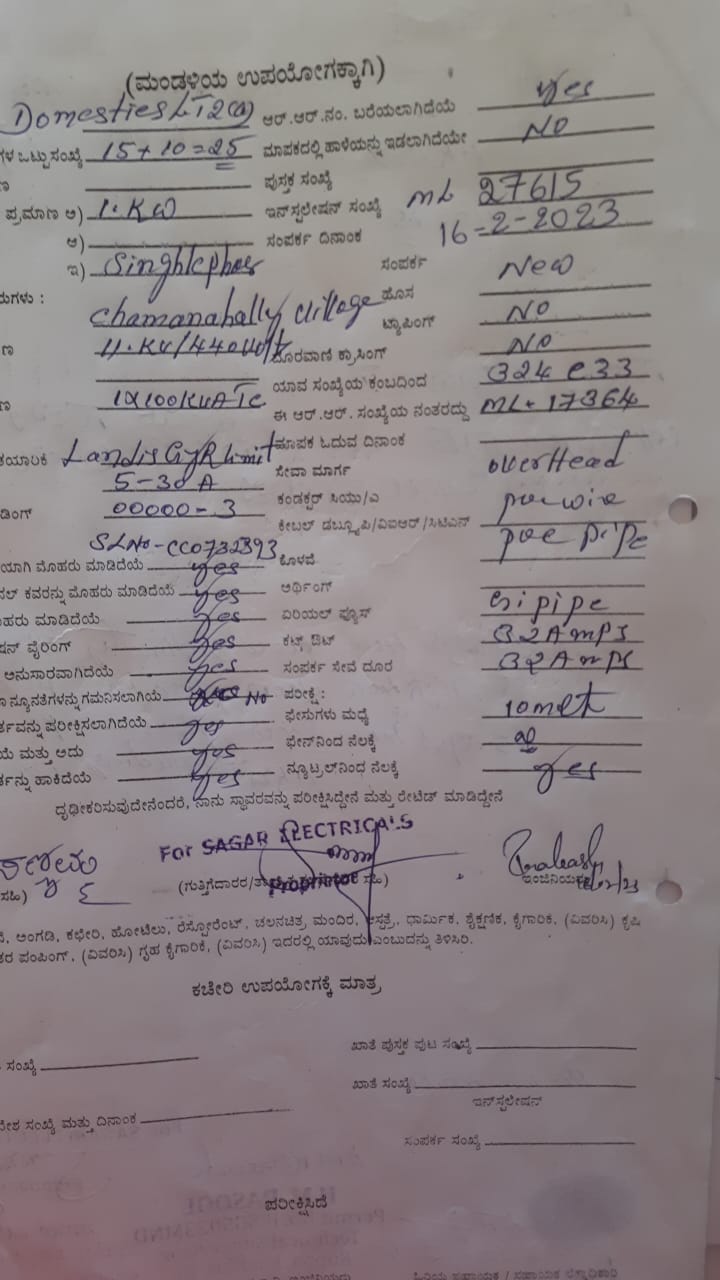 (ಮಂಡಳಿಯ ಉಪಯೋಗಕ್ಕಾಗಿ)
Domesties LT2(a) ಆರ್.ಆರ್.ನಂ. ಬರೆಯಲಾಗಿದೆಯೆ yes
ಗಳ ಒಟ್ಟು ಸಂಖ್ಯೆ 15+10=25 ಮಾಪಕದಲ್ಲಿ ಹಾಳೆಯನ್ನು ಇಡಲಾಗಿದೆಯೇ NO
ಣ ಪುಸ್ತಕ ಸಂಖ್ಯೆ
ಪ್ರಮಾಣ ಅ) 1.KW ಇನ್‌ಸ್ಟಲೇಷನ್ ಸಂಖ್ಯೆ ML 27615
ಆ) ಸಂಪರ್ಕ ದಿನಾಂಕ 16-2-2023
ಇ) Singhlephas ಸಂಪರ್ಕ New
ರುಗಳು : ಹೊಸ
Chamanahally Village ಟ್ಯಾಪಿಂಗ್ NO
ಣ 11.KV/440Volt ದೂರವಾಣಿ ಕ್ರಾಸಿಂಗ್ NO
ಯಾವ ಸಂಖ್ಯೆಯ ಕಂಬದಿಂದ
ಣ 1X100KVATC ಈ ಆರ್.ಆರ್. ಸಂಖ್ಯೆಯ ನಂತರದ್ದು ML-17364
ಮಾಪಕ ಓದುವ ದಿನಾಂಕ
ತಯಾರಿಕೆ Landis GYR limit ಸೇವಾ ಮಾರ್ಗ overHead
5-30A ಕಂಡಕ್ಟರ್ ಸಿಯು/ಎ pvc wire
ಡಿಂಗ್ 00000-3 ಕೇಬಲ್ ಡಬ್ಲ್ಯೂಪಿ/ವಿಐಆರ್/ಸಿಟಿಎಸ್ pvc pipe
SLNo-CC0732393 ಕೊಳವೆ
ಯಾಗಿ ಮೊಹರು ಮಾಡಿದೆಯೆ yes
ನಲ್ ಕವರನ್ನು ಮೊಹರು ಮಾಡಿದೆಯೆ yes ಅರ್ಥಿಂಗ್ Gi pipe
ಹರು ಮಾಡಿದೆಯೆ yes ಏರಿಯಲ್ ಫ್ಯೂಸ್ 32Amps
ಷನ್ ವೈರಿಂಗ್ yes ಕಟ್ಟ್ ಔಟ್ 32Amps
ಅನುಸಾರವಾಗಿದೆಯೆ yes ಸಂಪರ್ಕ ಸೇವೆ ದೂರ
ನ್ಯೂನತೆಗಳನ್ನು ಗಮನಿಸಲಾಗಿಯೆ No ಪರೀಕ್ಷೆ : 10met
ರ್ತವನ್ನು ಪರೀಕ್ಷಿಸಲಾಗಿದೆಯೆ yes ಫೇಸುಗಳು ಮಧ್ಯೆ
ಯೆ ಮತ್ತು ಅದು yes ಫೇಸ್‌ನಿಂದ ನೆಲಕ್ಕೆ
ರ್ತನ್ನು ಹಾಕಿದೆಯೆ yes ನ್ಯೂಟ್ರಲ್‌ನಿಂದ ನೆಲಕ್ಕೆ yes
ದೃಢೀಕರಿಸುವುದೇನೆಂದರೆ, ನಾನು ಸ್ಥಾವರವನ್ನು ಪರೀಕ್ಷಿಸಿದ್ದೇನೆ ಮತ್ತು ರೇಟೆಡ್ ಮಾಡಿದ್ದೇನೆ
For SAGAR ELECTRICALS
Proprietor
ಸಹಿ) (ಗುತ್ತಿಗೆದಾರರ/ ಸಹಿ) ಇಂಜಿನಿಯರ್
, ಅಂಗಡಿ, ಕಛೇರಿ, ಹೋಟೆಲು, ರೆಸ್ಟೋರೆಂಟ್, ಚಲನಚಿತ್ರ ಮಂದಿರ, ಆಸ್ಪತ್ರೆ, ಧಾರ್ಮಿಕ, ಶೈಕ್ಷಣಿಕ, ಕೈಗಾರಿಕೆ, (ವಿವರಿಸಿ) ಕೃಷಿ
ತರ ಪಂಪಿಂಗ್, (ವಿವರಿಸಿ) ಗೃಹ ಕೈಗಾರಿಕೆ, (ವಿವರಿಸಿ) ಇದರಲ್ಲಿ ಯಾವುದು ಎಂಬುದನ್ನು ತಿಳಿಸಿರಿ.
ಕಚೇರಿ ಉಪಯೋಗಕ್ಕೆ ಮಾತ್ರ
ಖಾತೆ ಪುಸ್ತಕ ಪುಟ ಸಂಖ್ಯೆ
ಸಂಖ್ಯೆ
ಖಾತೆ ಸಂಖ್ಯೆ
ಇನ್‌ಸ್ಟಲೇಷನ್
ದೇಶ ಸಂಖ್ಯೆ ಮತ್ತು ದಿನಾಂಕ
ಸಂಪರ್ಕ ಸಂಖ್ಯೆ
ಪರೀಕ್ಷಿಸಿದೆ